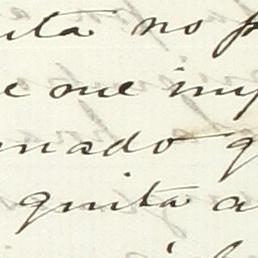 uta no p
e me imp
mado q
quita a